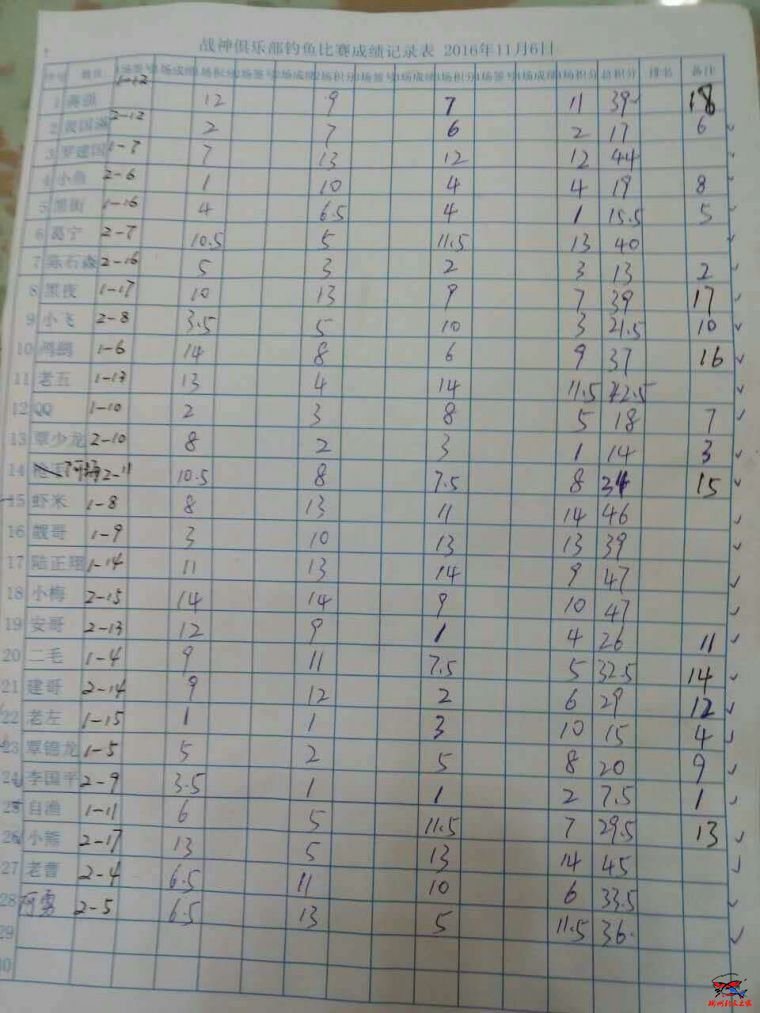 战神俱乐部钓鱼比赛成绩记录表 2016年11月6日
序号 姓名 1场签号 1场成绩 1场积分 2场签号 2场成绩 2场积分 3场签号 3场成绩 3场积分 4场签号 4场成绩 4场积分 总积分 排名 备注
1 1-12 12 9 7 11 39 18
2 2-12 2 7 6 2 17 6
3 罗建国 1-7 7 13 12 12 44
4 小鱼 2-6 1 10 4 4 19 8
5 1-16 4 6.5 4 1 15.5 5
6 葛宁 2-7 10.5 5 11.5 13 40
7 陈石淼 2-16 5 3 2 3 13 2
8 黑夜 1-17 10 13 9 7 39 17
9 小飞 2-8 3.5 5 10 3 21.5 10
10 鸿鹏 1-6 14 8 6 9 37 16
11 老五 1-13 13 4 14 11.5 42.5
12 QQ 1-10 2 3 8 5 18 7
13 覃少龙 2-10 8 2 3 1 14 3
14 2-11 10.5 8 7.5 8 34 15
15 虾米 1-8 8 13 11 14 46
16 靓哥 1-9 3 10 13 13 39
17 陆正翔 1-14 11 13 14 9 47
18 小梅 2-15 14 14 9 10 47
19 安哥 2-13 12 9 1 4 26 11
20 二毛 1-4 9 11 7.5 5 32.5 14
21 建哥 2-14 9 12 2 6 29 12
22 老左 1-15 1 1 3 10 15 4
23 覃锦龙 1-5 5 2 5 8 20 9
24 李国平 2-9 3.5 1 1 2 7.5 1
25 自渔 1-11 6 5 11.5 7 29.5 13
26 小熊 2-17 13 5 13 14 45
27 老曹 2-4 6.5 11 10 6 33.5
28 阿勇 2-5 6.5 13 5 11.5 36
29
30